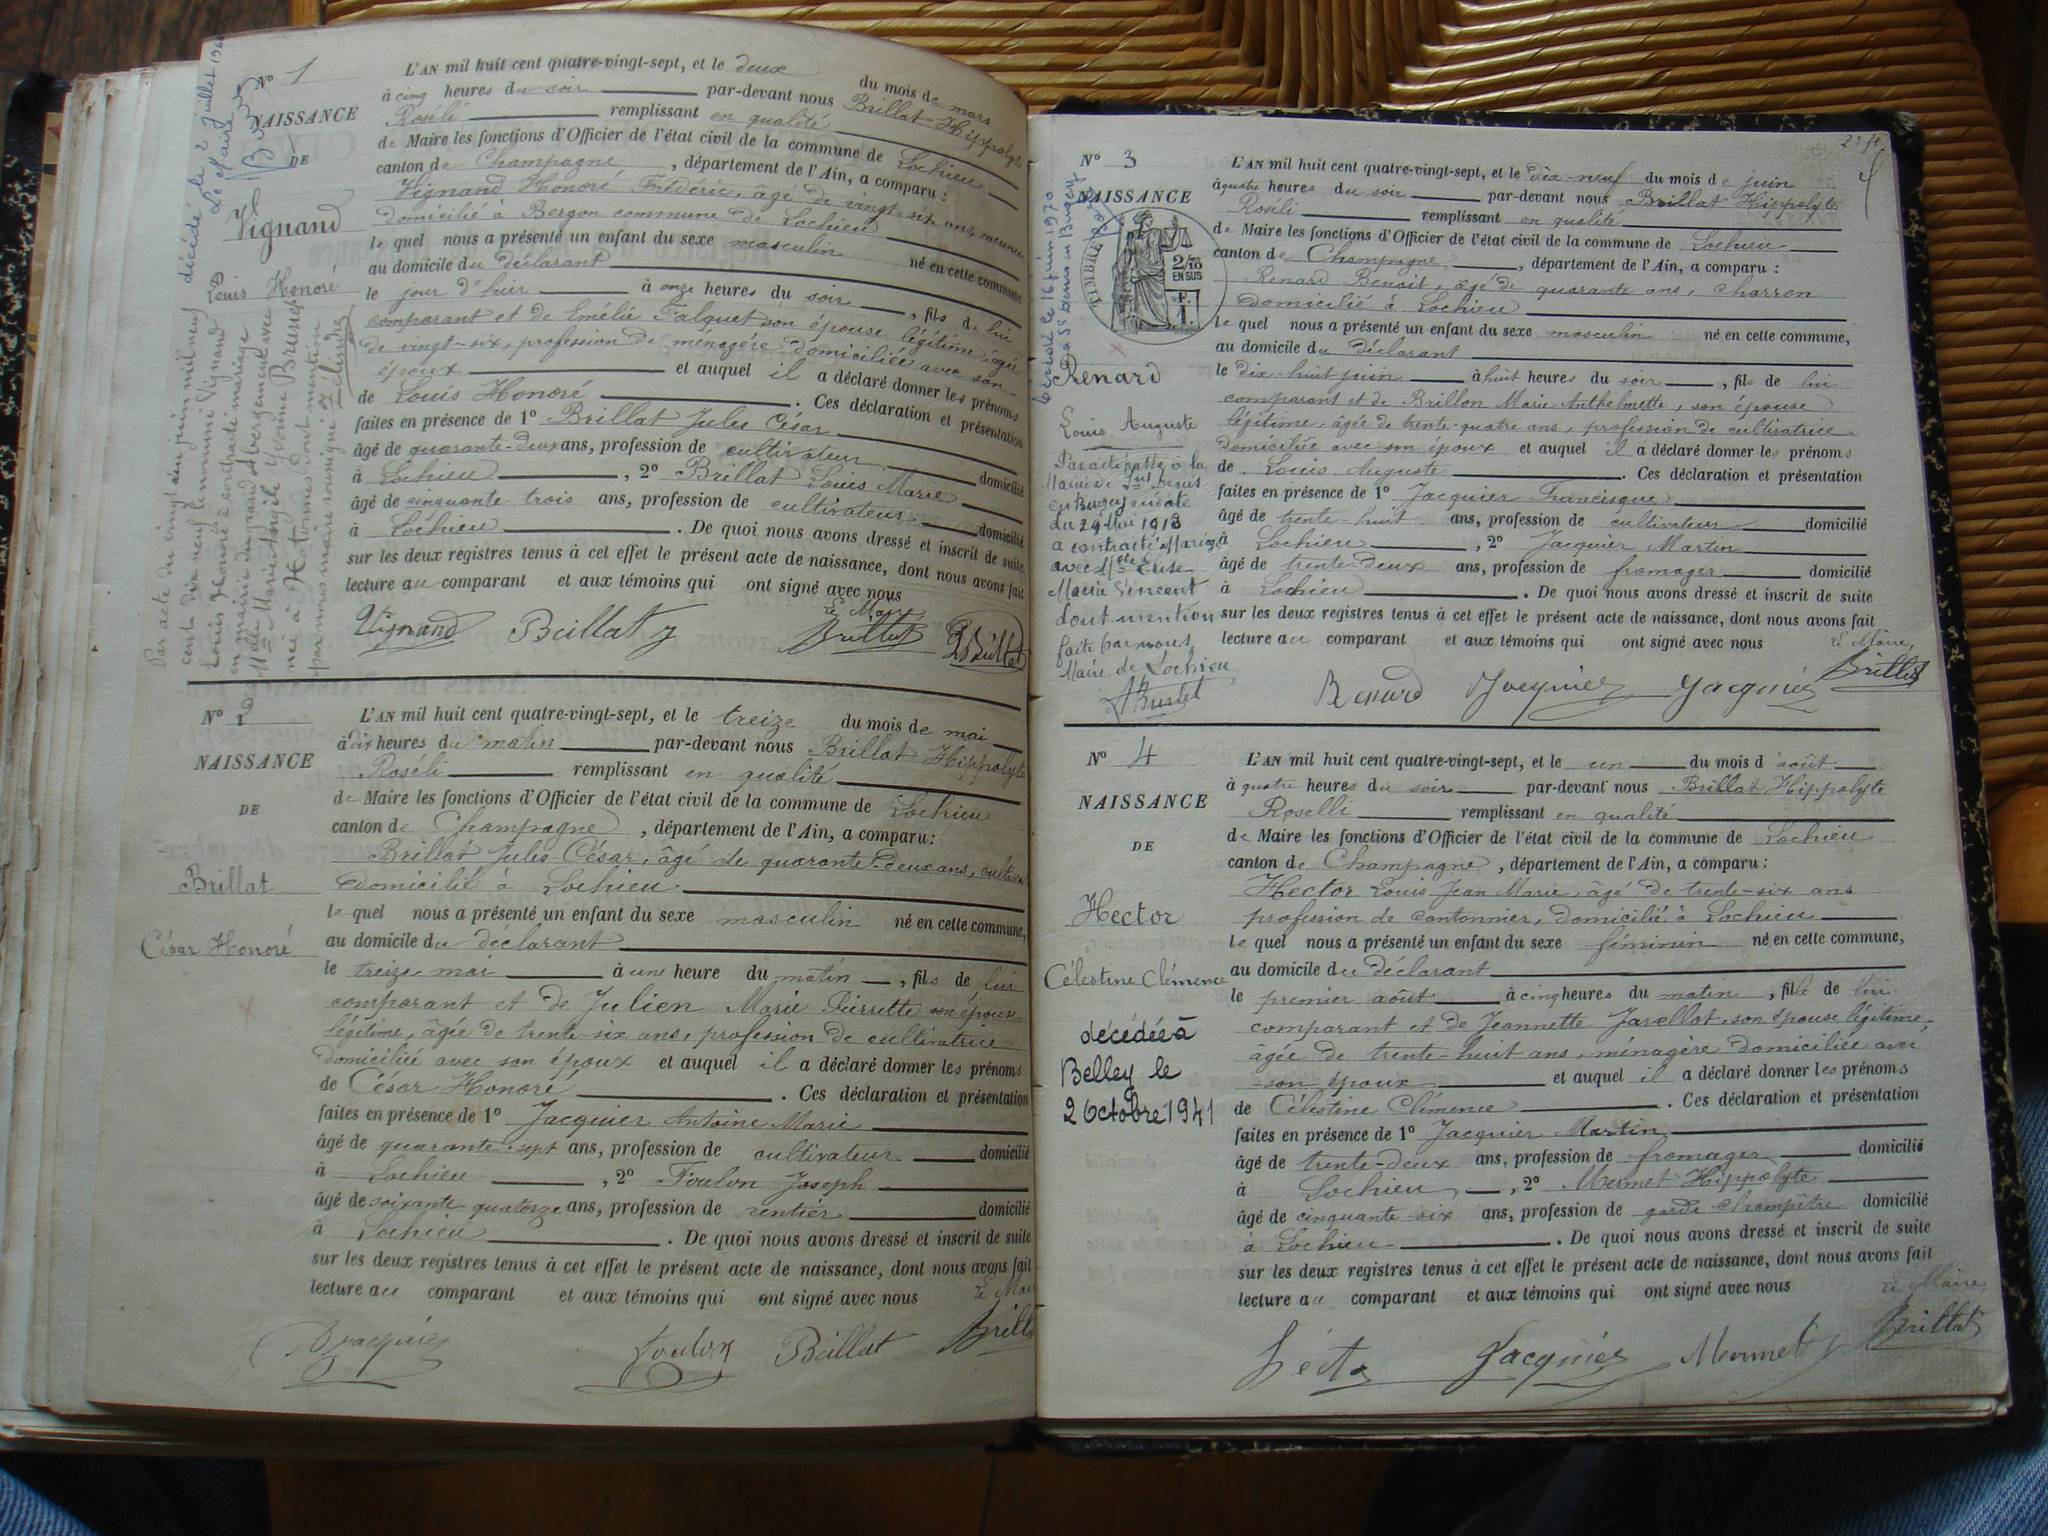 No 1
NAISSANCE
DE
Vignand
Louis Honoré
décédé le 2 juillet
Le Maire
Par acte du vingt cinq juin mil neuf
cent dix neuf le nommé Vignand
Louis Honoré a contracté mariage
en mairie du grand Abergement avec
Melle Marie Angèle Yvonne Brunet
née à Hotonnes dont mention
par nous maire soussigné
L'AN mil huit cent quatre-vingt-sept, et le deux du mois de mars
à cinq heures du soir par-devant nous Brillat Hippolyte
Roséli remplissant en qualité
de Maire les fonctions d'Officier de l'état civil de la commune de Lochieu
canton de Champagne, département de l'Ain, a comparu :
Vignand Honoré Frédéric, âgé de vingt-six ans, meunier
domicilié à Bergon commune de Lochieu
le quel nous a présenté un enfant du sexe masculin né en cette commune
au domicile du déclarant
le jour d'hier à onze heures du soir, fils de lui
comparant et de Emélie Falquet son épouse légitime, âgée
de vingt-six, profession de ménagère domiciliée avec son
époux et auquel il a déclaré donner les prénoms
de Louis Honoré. Ces déclaration et présentation
faites en présence de 1º Brillat Jules César
âgé de quarante-deux ans, profession de cultivateur domicilié
à Lochieu, 2º Brillat Louis Marie
âgé de cinquante trois ans, profession de cultivateur domicilié
à Lochieu. De quoi nous avons dressé et inscrit de suite
sur les deux registres tenus à cet effet le présent acte de naissance, dont nous avons fait
lecture au comparant et aux témoins qui ont signé avec nous
Le Maire
Vignand Brillat J Brillat Brillat
No 2
NAISSANCE
DE
Brillat
César Honoré
L'AN mil huit cent quatre-vingt-sept, et le treize du mois de mai
à dix heures du matin par-devant nous Brillat Hippolyte
Roséli remplissant en qualité
de Maire les fonctions d'Officier de l'état civil de la commune de Lochieu
canton de Champagne, département de l'Ain, a comparu :
Brillat Jules César, âgé de quarante-deux ans,
domicilié à Lochieu
le quel nous a présenté un enfant du sexe masculin né en cette commune,
au domicile du déclarant
le treize mai à une heure du matin, fils de lui
comparant et de Julien Marie Pierrette son épouse
légitime, âgée de trente-six ans, profession de cultivatrice
domiciliée avec son époux et auquel il a déclaré donner les prénoms
de César Honoré. Ces déclaration et présentation
faites en présence de 1º Jacquier Antoine Marie
âgé de quarante-sept ans, profession de cultivateur domicilié
à Lochieu, 2º Foulon Joseph
âgé de soixante quatorze ans, profession de rentier domicilié
à Lochieu. De quoi nous avons dressé et inscrit de suite
sur les deux registres tenus à cet effet le présent acte de naissance, dont nous avons fait
lecture au comparant et aux témoins qui ont signé avec nous
Jacquier Foulon Brillat
2e
No 3
NAISSANCE
2/10
EN SUS
1
Renard
Louis Auguste
décédé le 16 juin 1970
Par acte passé à la
Mairie de
en Bugey en date
du 29 Mai 1913
a contracté Mariage
avec Melle Elise
Maria Vincent
dont mention
faite par nous
Maire de Lochieu
L'AN mil huit cent quatre-vingt-sept, et le dix-neuf du mois de juin
à quatre heures du soir par-devant nous Brillat Hippolyte
Roséli remplissant en qualité
de Maire les fonctions d'Officier de l'état civil de la commune de Lochieu
canton de Champagne, département de l'Ain, a comparu :
Renard Benoit, âgé de quarante ans, charron
domicilié à Lochieu
le quel nous a présenté un enfant du sexe masculin né en cette commune,
au domicile du déclarant
le dix-huit juin à huit heures du soir, fils de lui
comparant et de Brillon Marie Anthelmette, son épouse
légitime, âgée de trente-quatre ans, profession de cultivatrice
domiciliée avec son époux et auquel il a déclaré donner les prénoms
de Louis Auguste. Ces déclaration et présentation
faites en présence de 1º Jacquier Francisque
âgé de trente-huit ans, profession de cultivateur domicilié
à Lochieu, 2º Jacquier Martin
âgé de trente-deux ans, profession de fromager domicilié
à Lochieu. De quoi nous avons dressé et inscrit de suite
sur les deux registres tenus à cet effet le présent acte de naissance, dont nous avons fait
lecture au comparant et aux témoins qui ont signé avec nous
Le Maire,
Renard Jacquier Jacquier Brillat
No 4
NAISSANCE
DE
Hector
Célestine Clémence
décédée à
Belley le
2 Octobre 1941
L'AN mil huit cent quatre-vingt-sept, et le un du mois d'août
à quatre heures du soir par-devant nous Brillat Hippolyte
Roselli remplissant en qualité
de Maire les fonctions d'Officier de l'état civil de la commune de Lochieu
canton de Champagne, département de l'Ain, a comparu :
Hector Louis Jean Marie, âgé de trente-six ans
profession de cantonnier, domicilié à Lochieu
le quel nous a présenté un enfant du sexe féminin né en cette commune,
au domicile du déclarant
le premier août à cinq heures du matin, fille de lui
comparant et de Jeannette Javellot, son épouse légitime,
âgée de trente-huit ans, ménagère domiciliée avec
son époux et auquel il a déclaré donner les prénoms
de Célestine Clémence. Ces déclaration et présentation
faites en présence de 1º Jacquier Martin
âgé de trente-deux ans, profession de fromager domicilié
à Lochieu, 2º Mermet Hippolyte
âgé de cinquante-six ans, profession de garde champêtre domicilié
à Lochieu. De quoi nous avons dressé et inscrit de suite
sur les deux registres tenus à cet effet le présent acte de naissance, dont nous avons fait
lecture au comparant et aux témoins qui ont signé avec nous
Le Maire
Hector Jacquier Mermet Brillat